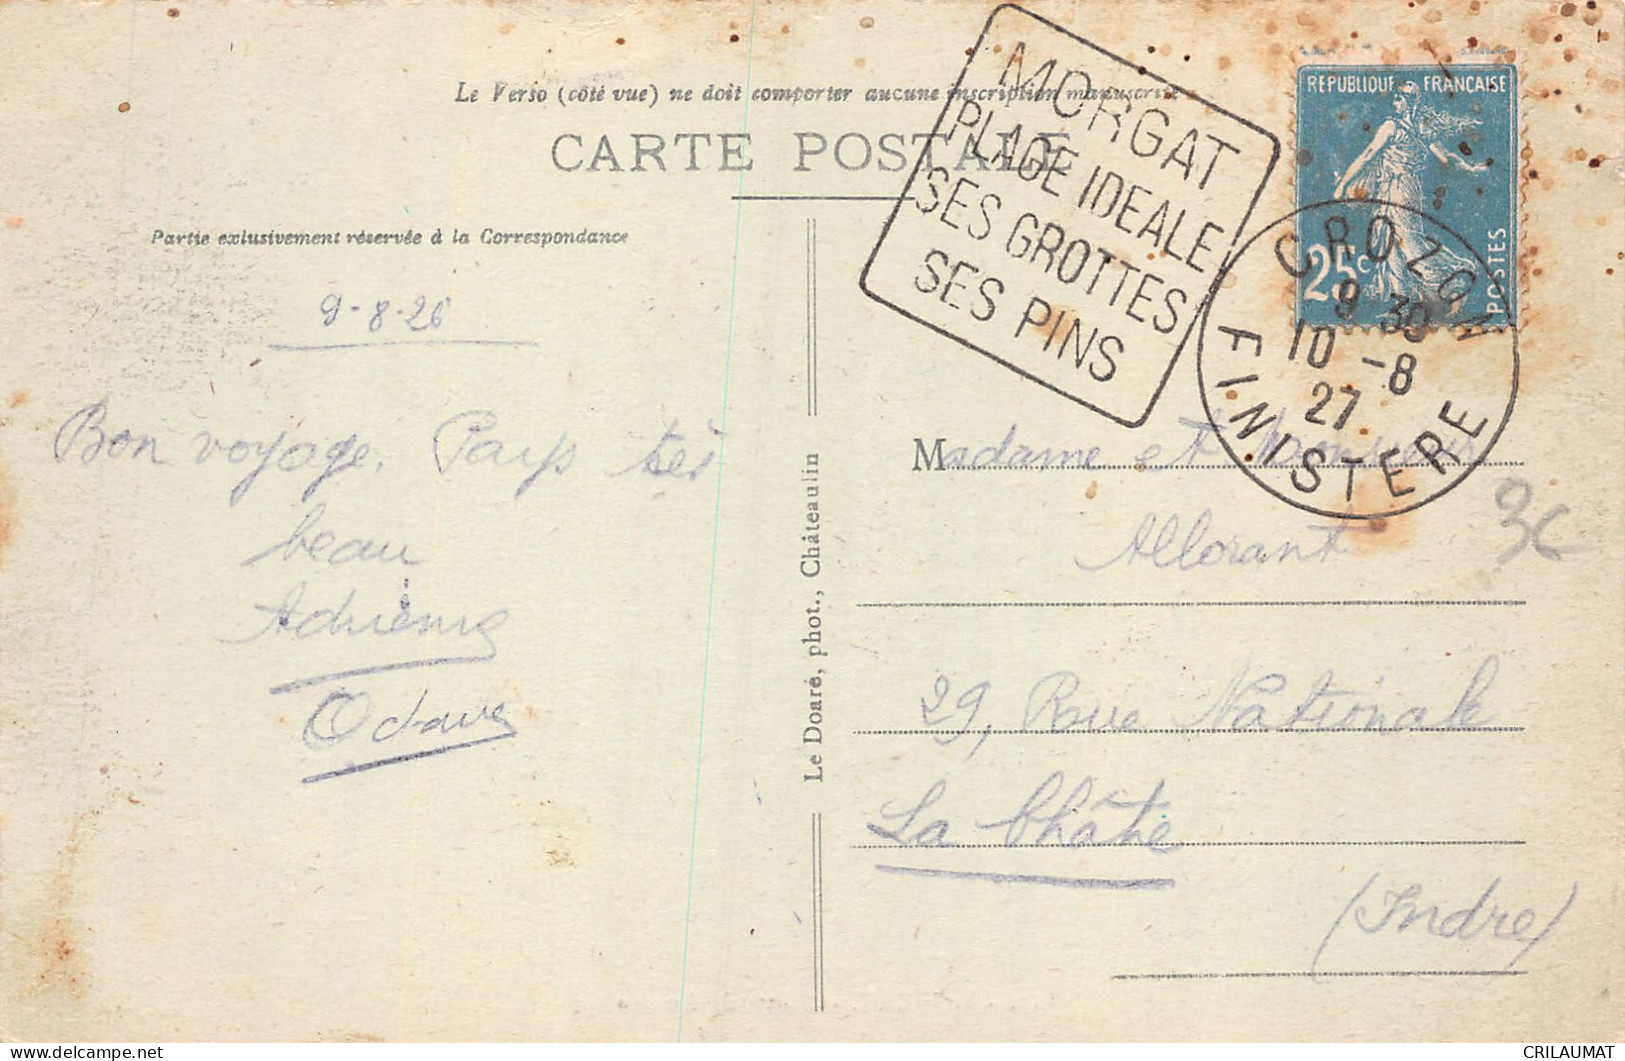 Le Verso (côté vue) ne doit comporter aucune inscription manuscrite
CARTE POSTALE
Partie exclusivement réservée à la Correspondance
9-8-26
Bon voyage. Pays très
beau
Adrienne
Octave
Le Doaré, phot., Châteaulin
MORGAT
PLAGE IDEALE
SES GROTTES
SES PINS
REPUBLIQUE FRANÇAISE
25c
POSTES
CROZON
9 30
10 -8
27
FINISTERE
Madame et Monsieur
Allorant
29, Rue Nationale
La Châtre
(Indre)
CRILAUMAT